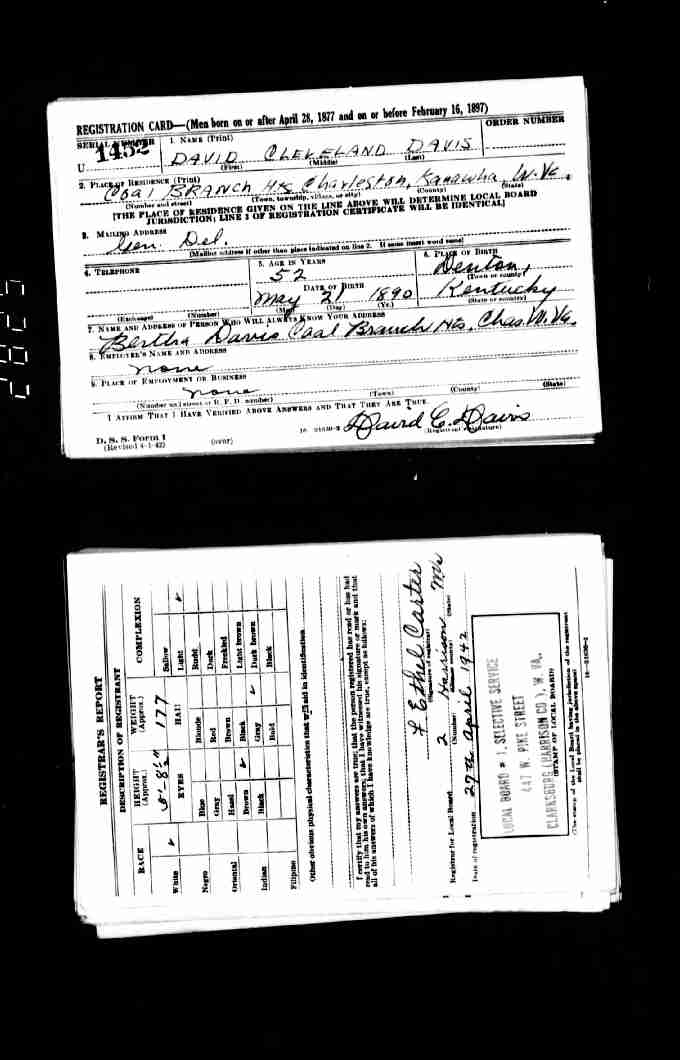 REGISTRATION CARD—(Men born on or after April 28, 1877 and on or before February 16, 1897)
SERIAL NUMBER
1. NAME (Print)
ORDER NUMBER
U 1452
DAVID CLEVELAND DAVIS
(First) (Middle) (Last)
2. PLACE OF RESIDENCE (Print)
Coal BRANCH Hts Charleston, Kanawha W. Va.
(Number and street) (Town, township, village, or city) (County) (State)
[THE PLACE OF RESIDENCE GIVEN ON THE LINE ABOVE WILL DETERMINE LOCAL BOARD
JURISDICTION; LINE 2 OF REGISTRATION CERTIFICATE WILL BE IDENTICAL]
3. MAILING ADDRESS
Gen. Del.
[Mailing address if other than place indicated on line 2. If same insert word same]
4. TELEPHONE
5. AGE IN YEARS
52
DATE OF BIRTH
May 21 1890
(Mo.) (Day) (Yr.)
6. PLACE OF BIRTH
Denton,
(Town or county)
Kentucky
(State or country)
(Exchange) (Number)
7. NAME AND ADDRESS OF PERSON WHO WILL ALWAYS KNOW YOUR ADDRESS
Bertha Davis Coal Branch Hts. Chas. W. Va.
8. EMPLOYER'S NAME AND ADDRESS
none
9. PLACE OF EMPLOYMENT OR BUSINESS
none
(Number and street or R. F. D. number) (Town) (County) (State)
I AFFIRM THAT I HAVE VERIFIED ABOVE ANSWERS AND THAT THEY ARE TRUE.
D. S. S. Form 1
(Revised 4-1-42)
(over)
16—21630-2
David C. Davis
(Registrant's signature)
REGISTRAR'S REPORT
DESCRIPTION OF REGISTRANT
RACE
HEIGHT (Approx.)
WEIGHT (Approx.)
COMPLEXION
5'-8½"
177
White ✓
Negro
Oriental
Indian
Filipino
EYES
Blue
Gray
Hazel
Brown ✓
Black
HAIR
Blonde
Red
Brown
Black
Gray ✓
Bald
Sallow
Light ✓
Ruddy
Dark
Freckled
Light brown
Dark brown
Black
Other obvious physical characteristics that will aid in identification
I certify that my answers are true; that the person registered has read or has had
read to him his own answers; that I have witnessed his signature or mark and that
all of his answers of which I have knowledge are true, except as follows:
L Ethel Carter
(Signature of registrar)
Registrar for Local Board 2 Harrison
(Number) (City or county) (State)
Date of registration 27th April 1942
LOCAL BOARD # 1. SELECTIVE SERVICE
447 W. PIKE STREET
CLARKSBURG (HARRISON CO), W. VA.
(STAMP OF LOCAL BOARD)
(The stamp of the Local Board having jurisdiction of the registrant
shall be placed in the above space)
16—21630-2